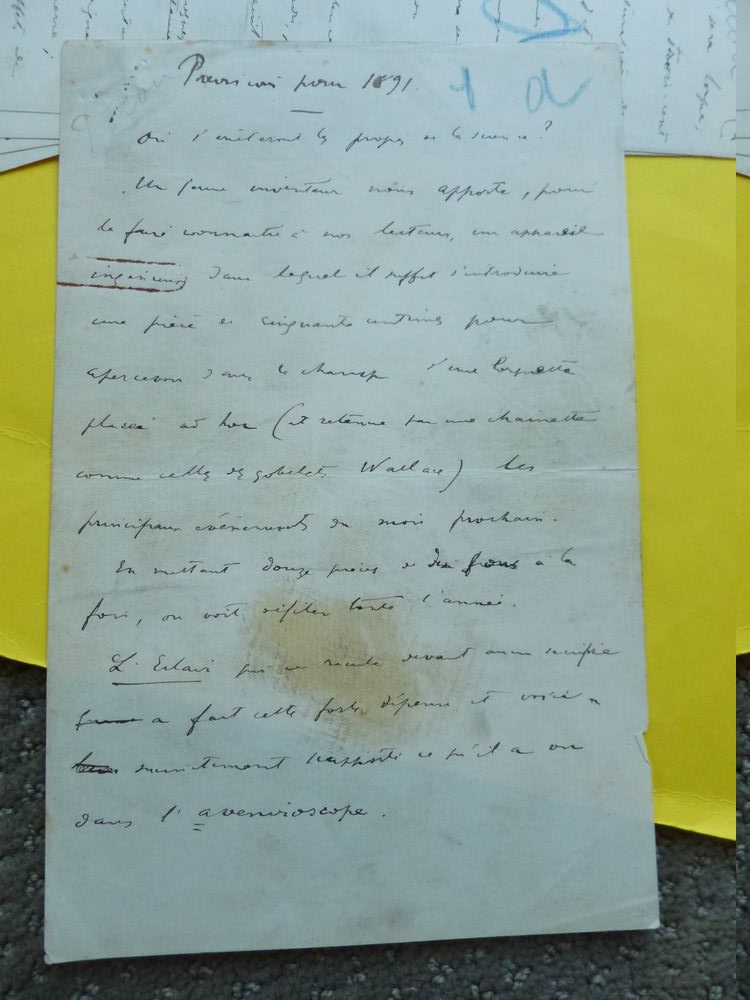 Prévisions pour 1891.
1 d
Où s'arrêteront les progrès de la science?
Un jeune inventeur nous apporte, pour
le faire connaître à nos lecteurs, un appareil
ingénieux dans lequel il suffit d'introduire
une pièce de cinquante centimes pour
apercevoir dans le champ d'une lorgnette
placée ad hoc (et retenue par une chainette
comme celle des gobelets Wallace) les
principaux événements du mois prochain.
En mettant douze pièces de dix francs à la
fois, on voit défiler toute l'année.
L'Eclair qui ne recule devant aucun sacrifice
a fait cette forte dépense et voici
rapporte ce qu'il a vu
dans l'avenirioscope.